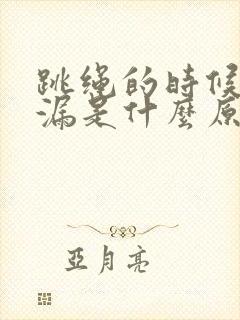 跳绳的时候
漏是什麼原
亞月亮